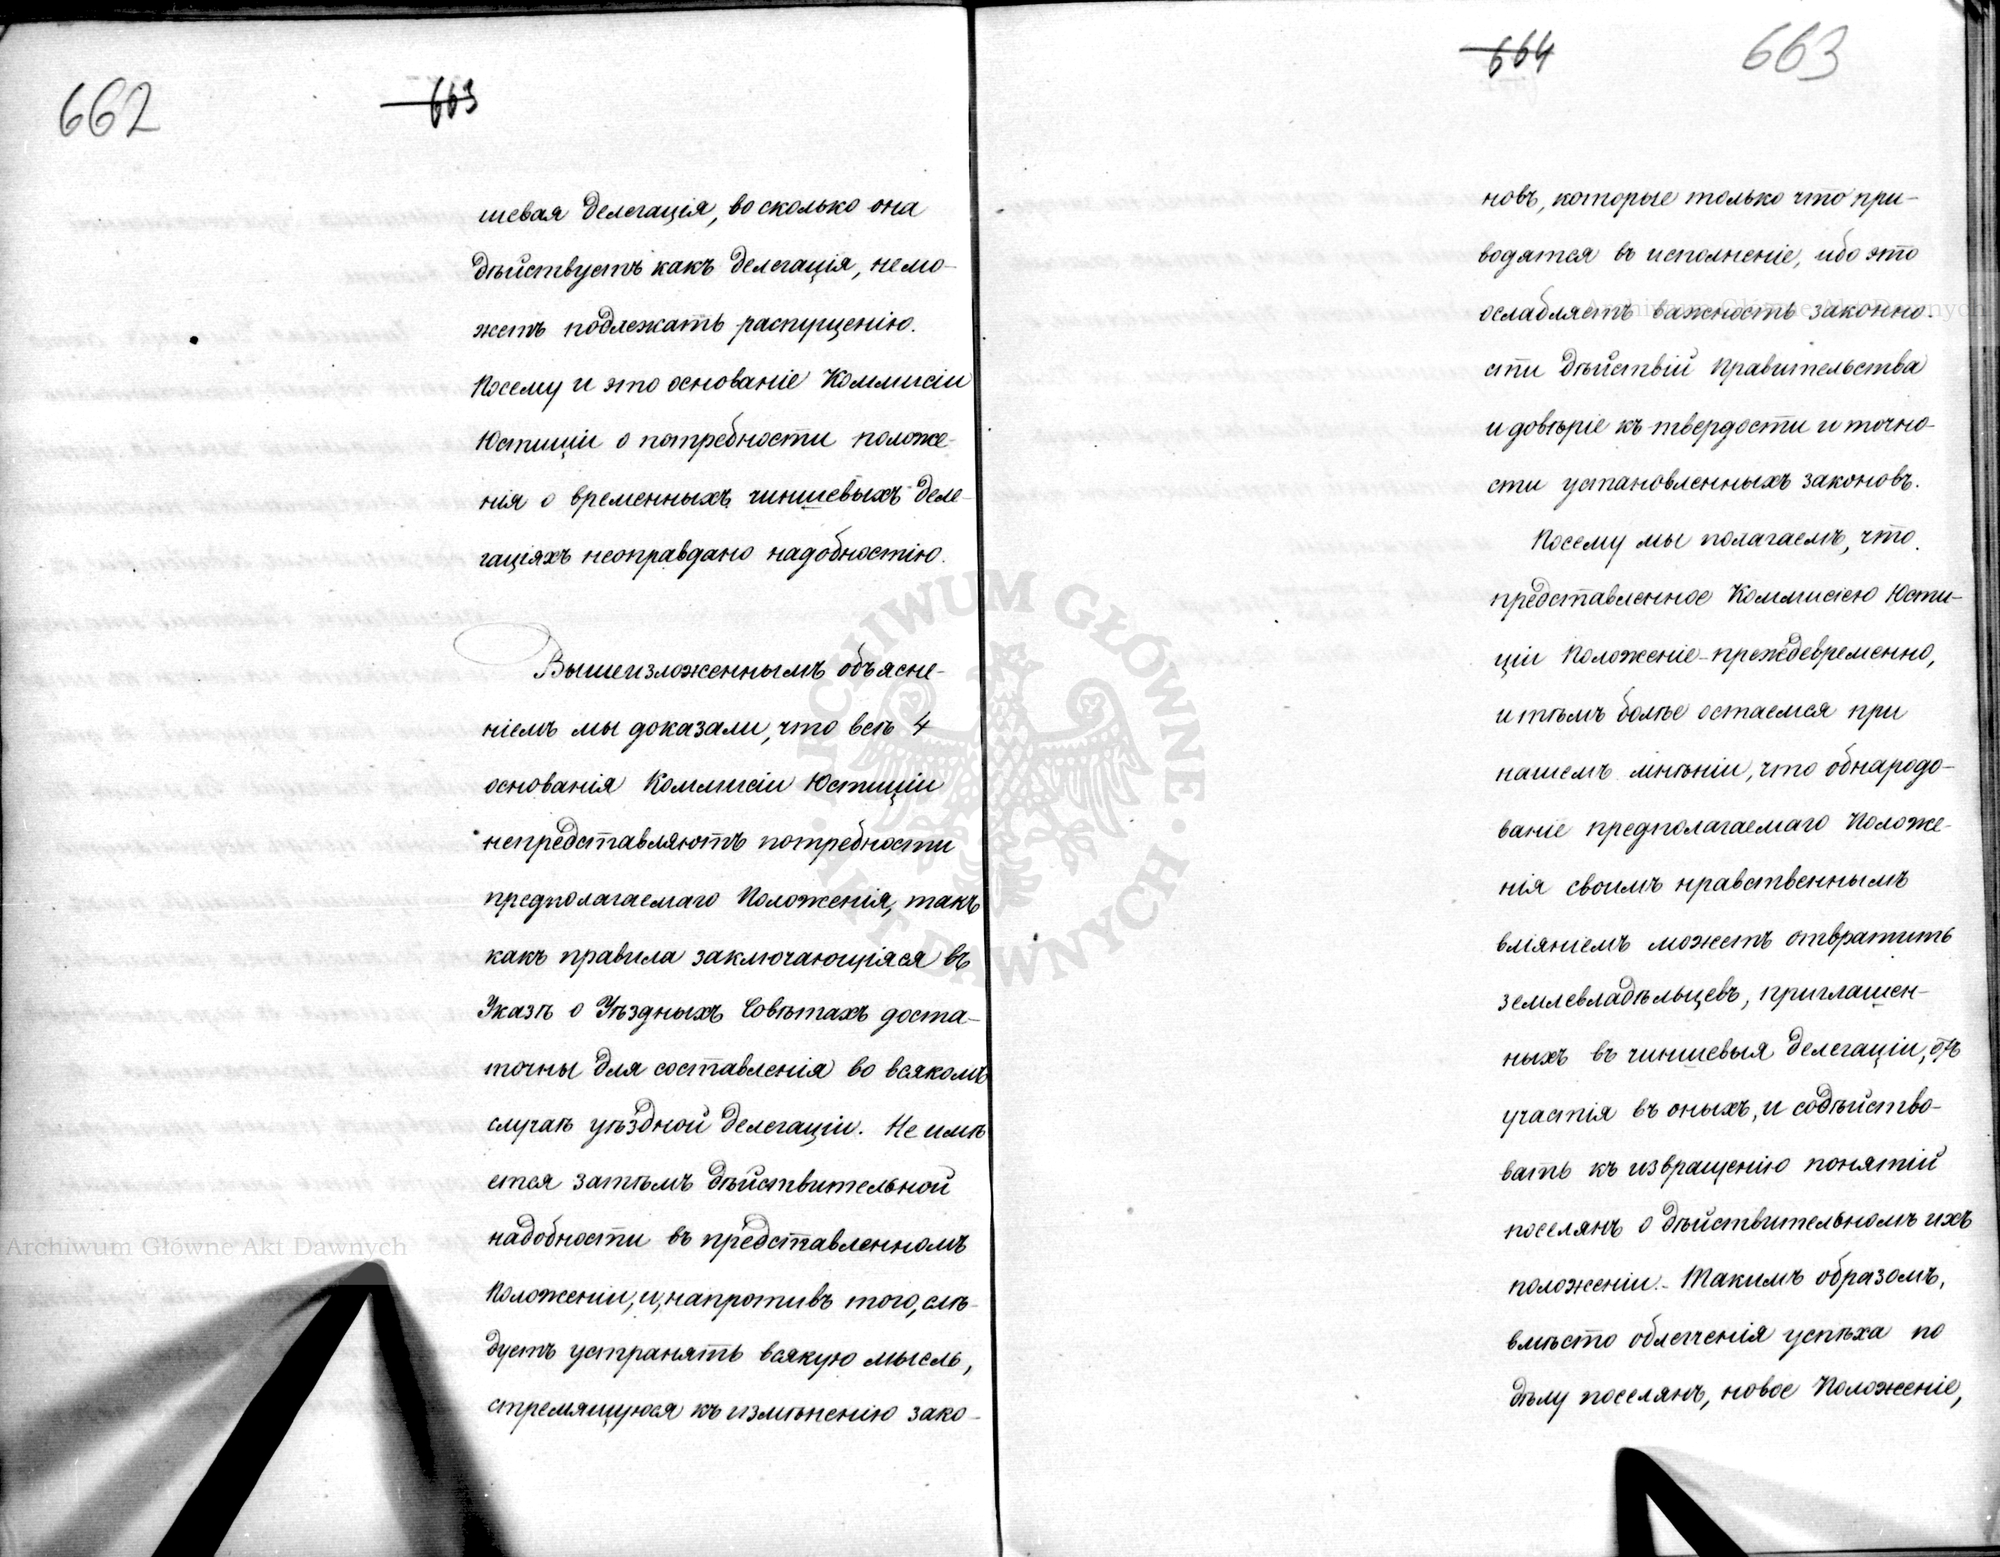 662
663
шевая делегація, во сколько она
дѣйствуетъ какъ делегація, не мо-
жетъ подлежать распущенію.
Посему и это основаніе Коммисіи
Юстиціи о потребности положе-
нія о временныхъ чиншевыхъ деле-
гаціяхъ неоправдано надобностію.
Вышеизложеннымъ объясне-
ніемъ мы доказали, что всѣ 4
основанія Коммисіи Юстиціи
непредставляютъ потребности
предполагаемаго Положенія, такъ
какъ правила заключающіяся въ
Указѣ о Уѣздныхъ Совѣтахъ доста-
точны для составленія во всякомъ
случаѣ уѣздной делегаціи. Не имѣ
ется затѣмъ дѣйствительной
надобности въ представленномъ
Положеніи, и, напротивъ того, слѣ-
дуетъ устранять всякую мысль,
стремящуюся къ измѣненію зако-
664
663
новъ, которые только что при-
водятся въ исполненіе, ибо это
ослабляетъ важность законно-
сти дѣйствій Правительства
и довѣріе къ твердости и точно-
сти установленныхъ законовъ.
Посему мы полагаемъ, что
представленное Коммисіею Юсти-
ціи Положеніе - преждевременно,
и тѣмъ болѣе остаемся при
нашемъ мнѣніи, что обнародо-
ваніе предполагаемаго Положе-
нія своимъ нравственнымъ
вліяніемъ можетъ отвратить
землевладѣльцевъ, приглашен-
ныхъ въ чиншевыя делегаціи, отъ
участія въ оныхъ, и содѣйство-
вать къ извращенію понятій
поселянъ о дѣйствительномъ ихъ
положеніи. - Такимъ образомъ,
вмѣсто облегченія успѣха по
дѣлу поселянъ, новое Положеніе,
Archiwum Główne Akt Dawnych
Archiwum Główne Akt Dawnych
ARCHIWUM GŁÓWNE · AKT DAWNYCH ·